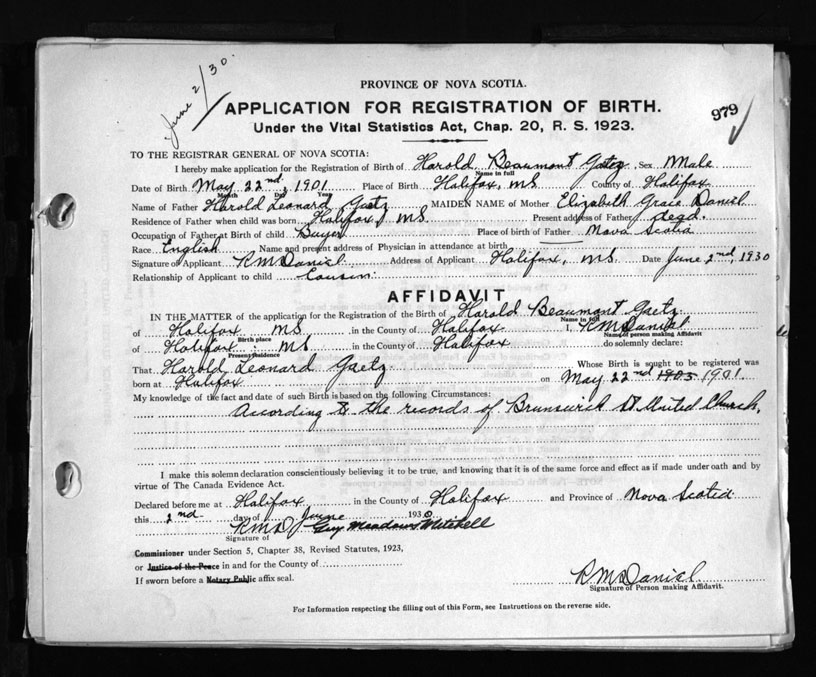 June 2/30.
PROVINCE OF NOVA SCOTIA.
APPLICATION FOR REGISTRATION OF BIRTH.
979
Under the Vital Statistics Act, Chap. 20, R. S. 1923.
TO THE REGISTRAR GENERAL OF NOVA SCOTIA:
I hereby make application for the Registration of Birth of Harold Beaumont Gaetz Sex Male
Name in full
Date of Birth May 22nd, 1901 Place of Birth Halifax, NS County of Halifax
Month Day Year
Name of Father Harold Leonard Gaetz MAIDEN NAME of Mother Elizabeth Gracie Daniel
Residence of Father when child was born Halifax, NS Present address of Father decd.
Occupation of Father at Birth of child Buyer Place of birth of Father Nova Scotia
Race English Name and present address of Physician in attendance at birth
Signature of Applicant R M Daniel Address of Applicant Halifax, NS Date June 2nd, 1930
Relationship of Applicant to child Cousin
AFFIDAVIT
IN THE MATTER of the application for the Registration of the Birth of Harold Beaumont Gaetz
Name in full
of Halifax NS in the County of Halifax I, R M Daniel
Birth place Name of person making Affidavit
of Halifax NS in the County of Halifax do solemnly declare:
Present Residence
That Harold Leonard Gaetz Whose Birth is sought to be registered was
born at Halifax on May 22nd 1903 1901
My knowledge of the fact and date of such Birth is based on the following Circumstances:
According to the records of Brunswick St United Church,
I make this solemn declaration conscientiously believing it to be true, and knowing that it is of the same force and effect as if made under oath and by
virtue of The Canada Evidence Act.
Declared before me at Halifax in the County of Halifax and Province of Nova Scotia
this 2nd day of June 1930
R M D Guy Meadows Mitchell
Signature of
Commissioner under Section 5, Chapter 38, Revised Statutes, 1923,
or Justice of the Peace in and for the County of
If sworn before a Notary Public affix seal.
R M Daniel
Signature of Person making Affidavit.
For Information respecting the filling out of this Form, see Instructions on the reverse side.